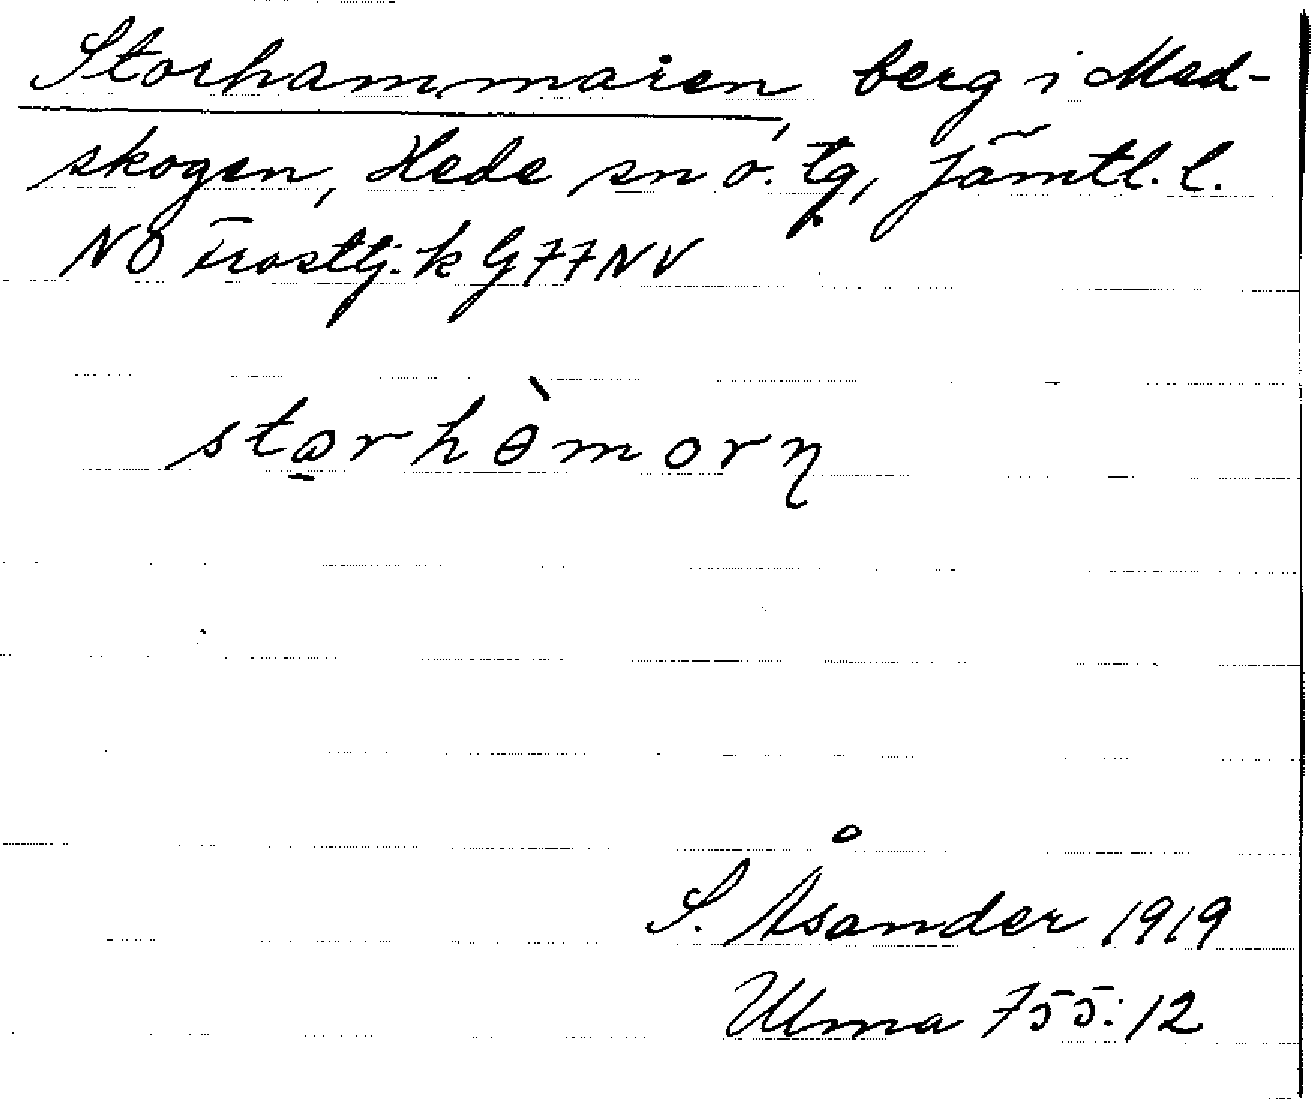 Storhammaren, berg i Med-
skogen, Hede sn o. tg, Jämtl. l.
NO Trosttj. k G77NV
starhòmorn
S. Åsander 1919
Ulma 755:12